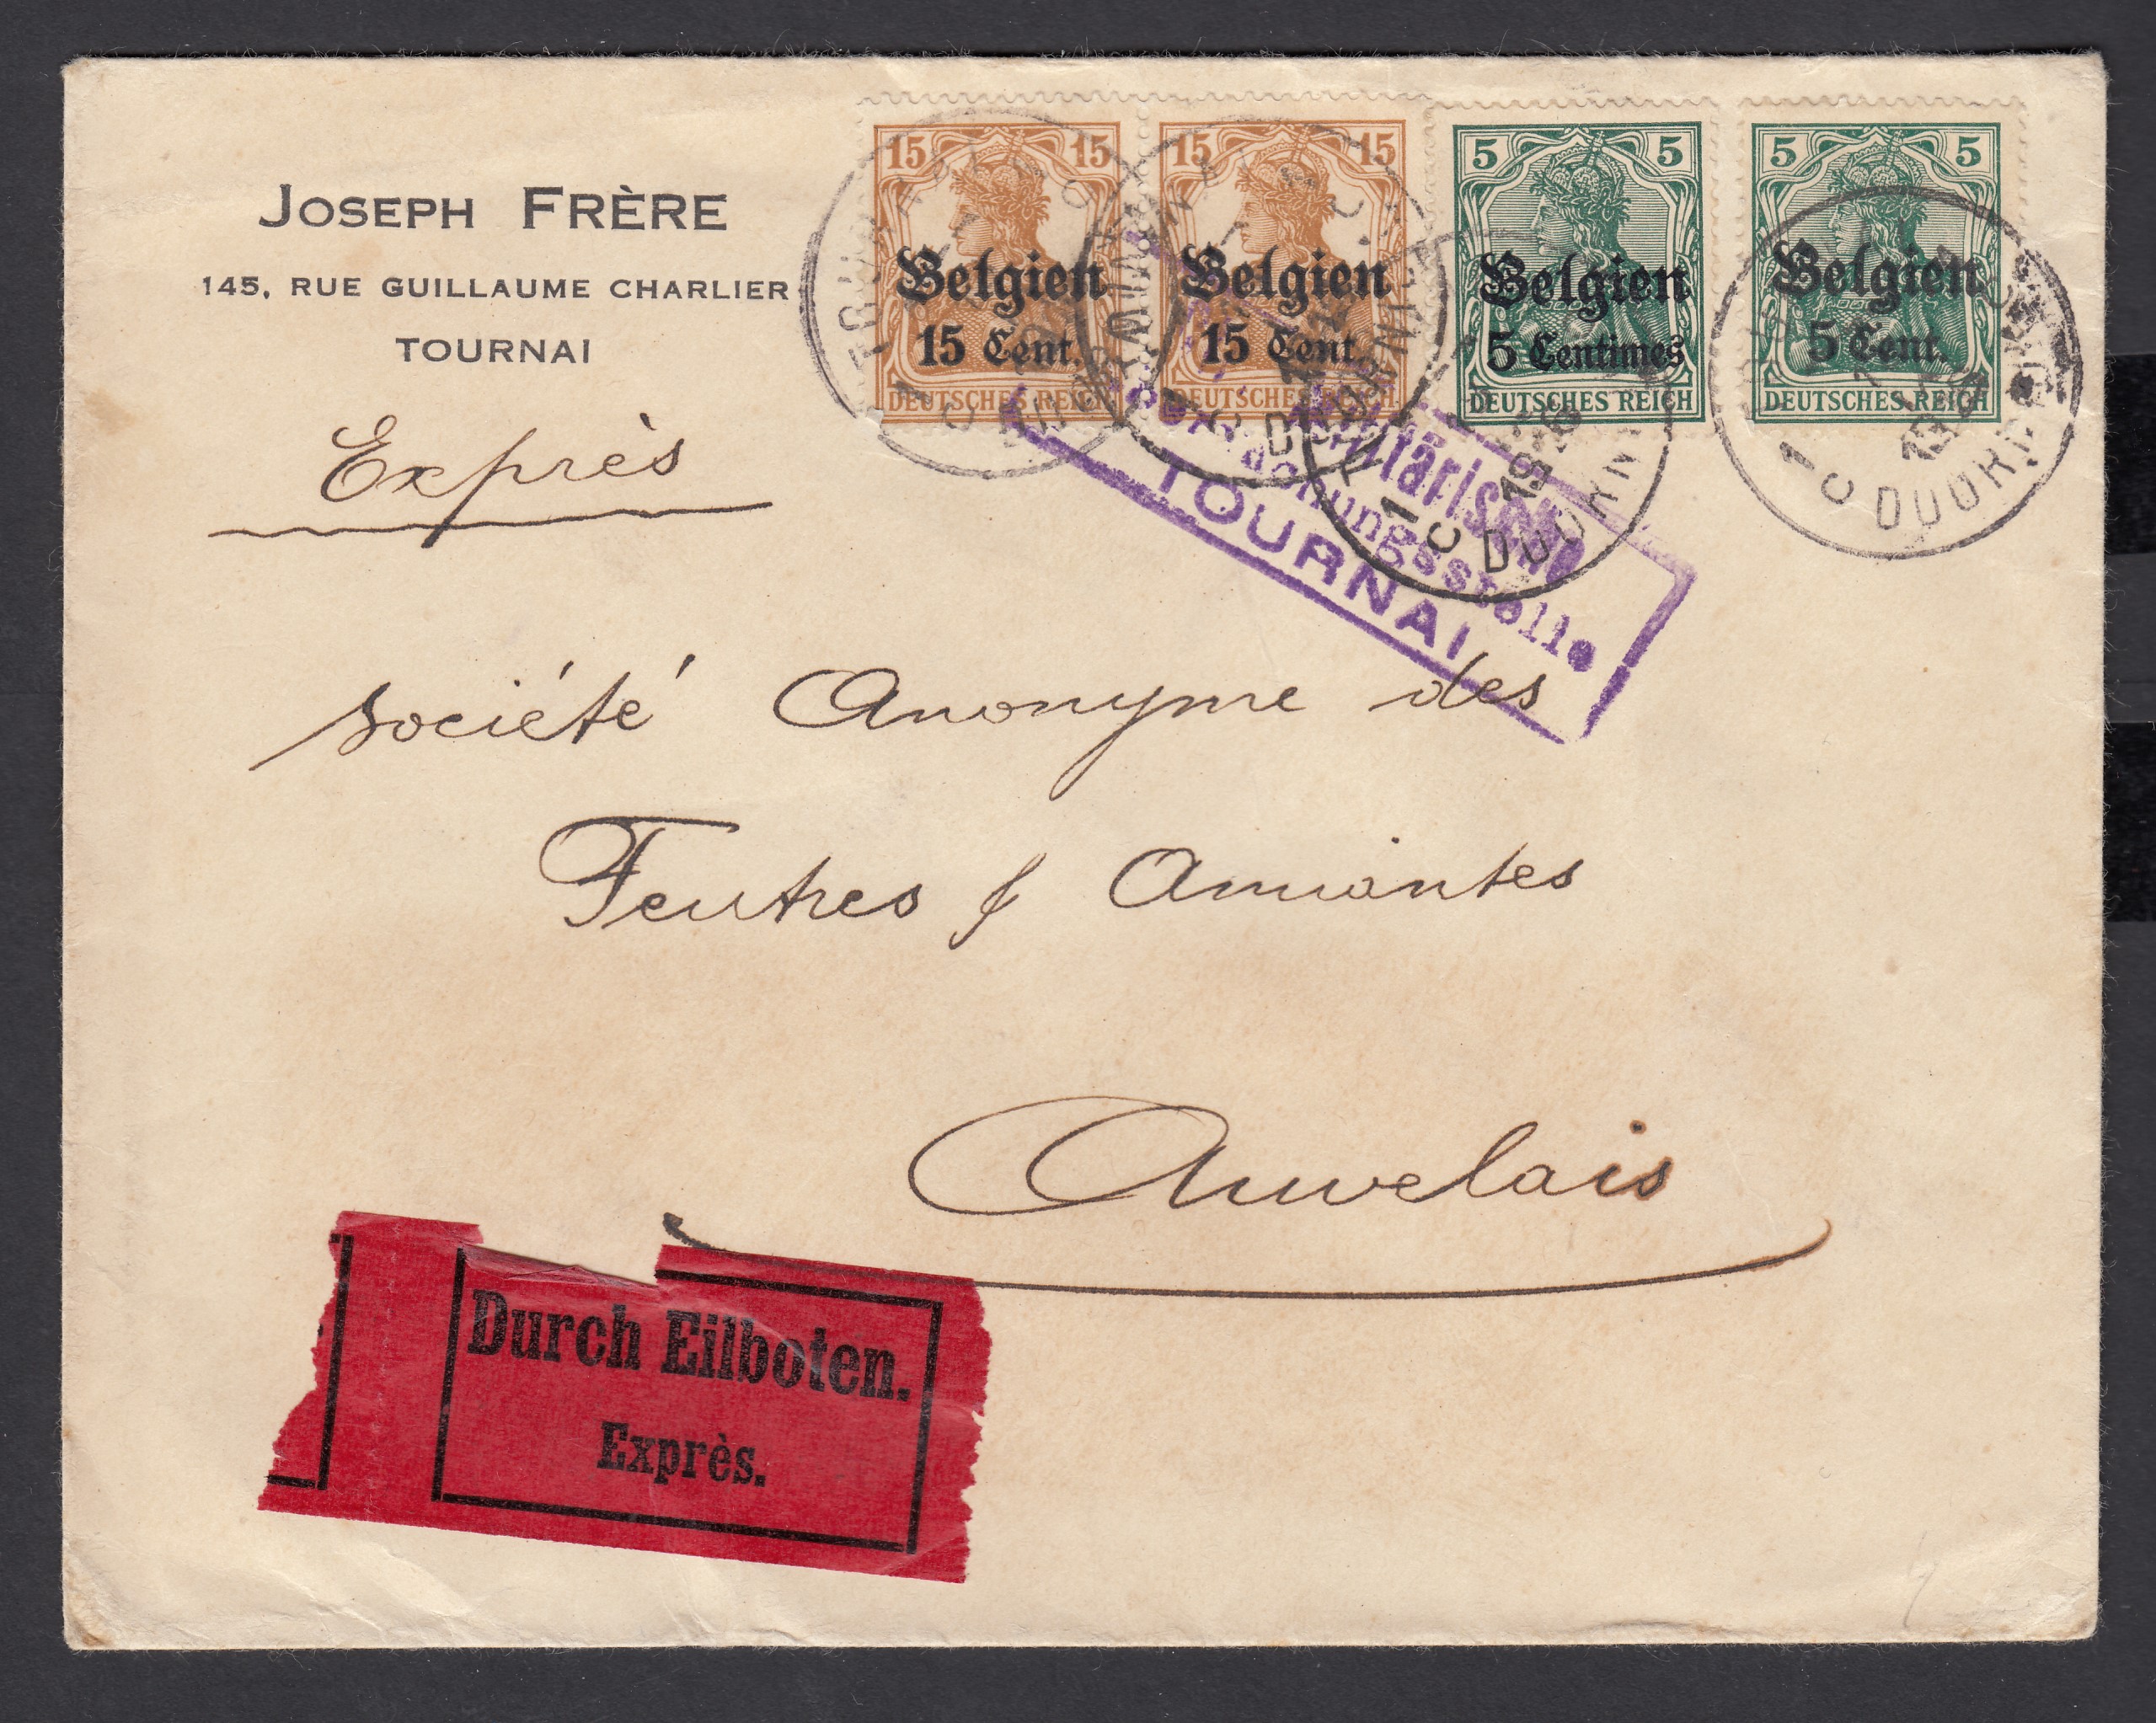 JOSEPH FRÈRE
145, RUE GUILLAUME CHARLIER
TOURNAI
Exprès
15 15
Belgien
15 Cent.
DEUTSCHES REICH
15 15
Belgien
15 Cent.
DEUTSCHES REICH
5 5
Belgien
5 Centimes
DEUTSCHES REICH
5 5
Belgien
5 Cent.
DEUTSCHES REICH
TOURNAI
1C DOORNIK
TOURNAI
1C DOORNIK
1C DOORNIK
1C DOORNIK
Militärische
Überwachungsstelle
TOURNAI
Société Anonyme des
Feutres & Amiantes
Auvelais
Durch Eilboten.
Exprès.